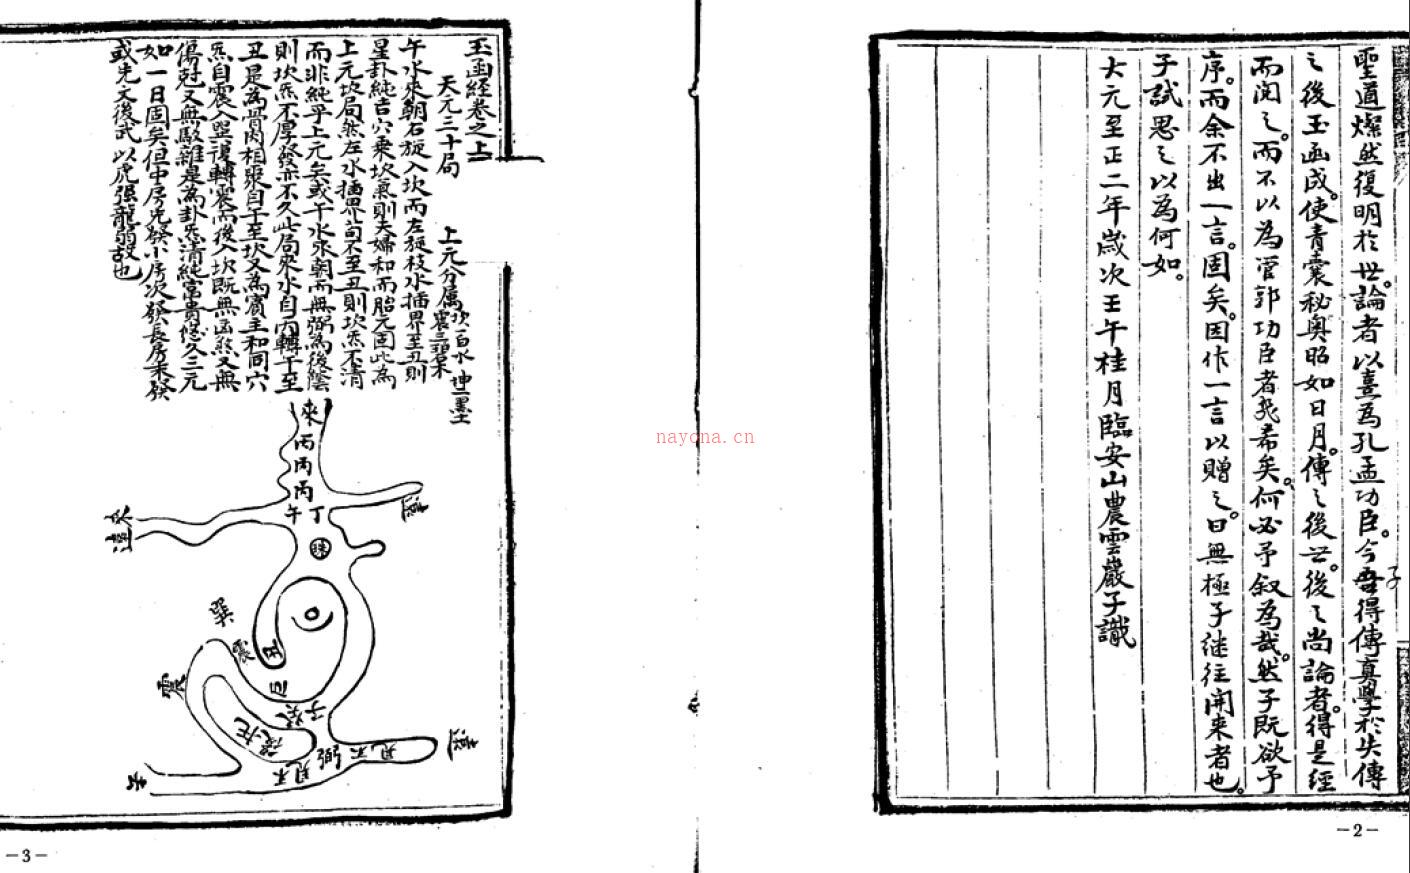 聖道燦然復明於世。論者以喜為孔孟功臣。今吾得傳真學於失傳
子
之後玉函成。使青囊秘奧昭如日月。傳之後世。後之尚論者。得是經
而閱之。而不以為管郭功臣者死希矣。何必予叙為哉。然子既欲予
序。而余不出一言。固矣。因作一言以贈之。曰無極子继往開来者也。
子試思之以為何如。
大元至正二年歲次壬午桂月臨安山農雲巖子識
-2-
玉函經卷之上
天元三十局 上元分属坎一白水 坤二黑土
震三碧木
午水來朝右旋入坎而左旋枝水插界至丑則
星卦純吉穴乗坎氣則夫婦和而胎元固此為
上元坎局然左水插界苟不至丑則坎炁不清
而非純乎上元矣或午水來朝而無弼為後蔭
則坎炁不厚發亦不久此局來水自丙轉午至
丑是為骨肉相聚自午至坎又為賓主和同穴
炁自震入巽復轉震而後入坎既無凶煞又無
傷尅又無駁雜是為卦炁清純富貴悠久三元
如一日固矣但中房先發小房次發長房末發
或先文後武以虎强龍弱故也
來
丙
丙
丙
午丁
巽
震
震
丑
子癸
不見
弼
不見
-3-
nayona.cn